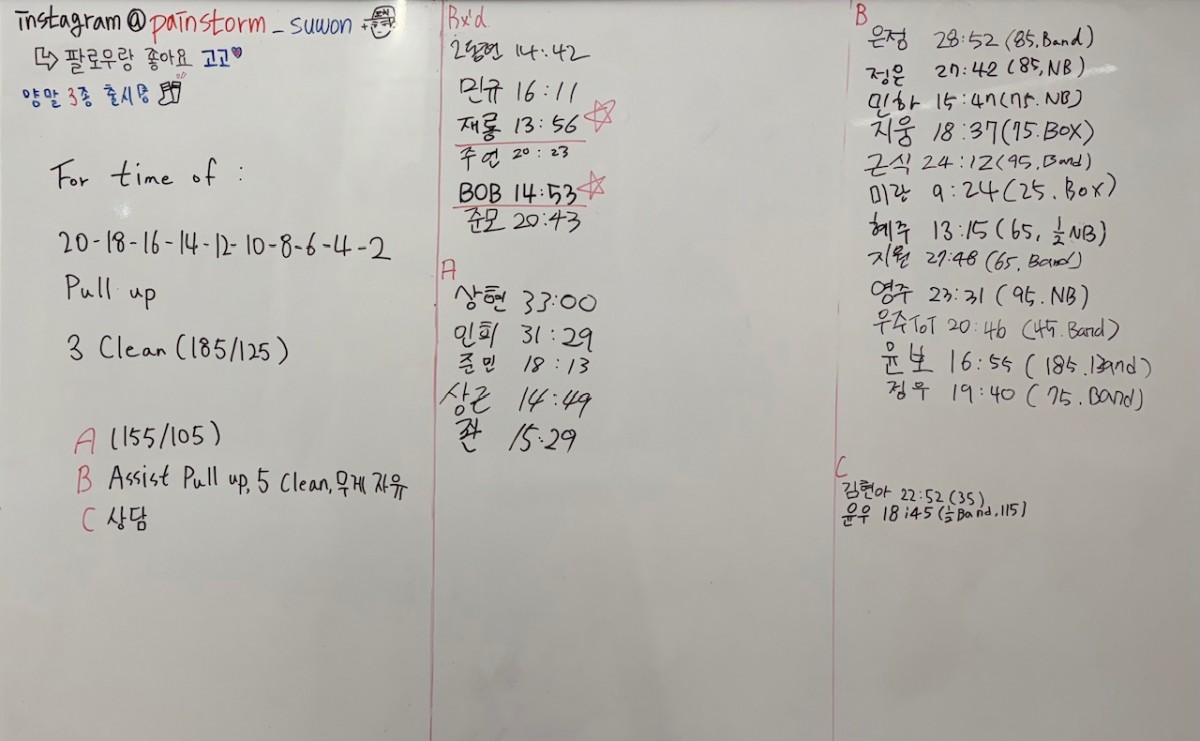 instagram@painstorm_suwon
팔로우랑 좋아요 고고
양말 3종 출시중
For time of :
20-18-16-14-12-10-8-6-4-2
Pull up
3 Clean (185/125)
A (155/105)
B Assist Pull up, 5 Clean, 무게 자유
C 상담
Rx'd
14:42
민규 16:11
재룡 13:56
주연 20:23
BOB 14:53
준모 20:43
A
상현 33:00
인회 31:29
준민 18:13
상근 14:49
좐 15:29
B
은정 28:52 (85, Band)
정은 27:42 (85, NB)
민하 15:47 (75. NB)
지웅 18:37 (75. BOX)
근식 24:12 (95. Band)
미란 9:24 (25. Box)
혜주 13:15 (65, ½ NB)
지원 27:48 (65. Band)
영주 23:31 (95. NB)
우주ToT 20:46 (45. Band)
윤보 16:55 (185. Band)
정우 19:40 (75. Band)
C
김현아 22:52 (35)
윤우 18:45 (½ Band, 115)